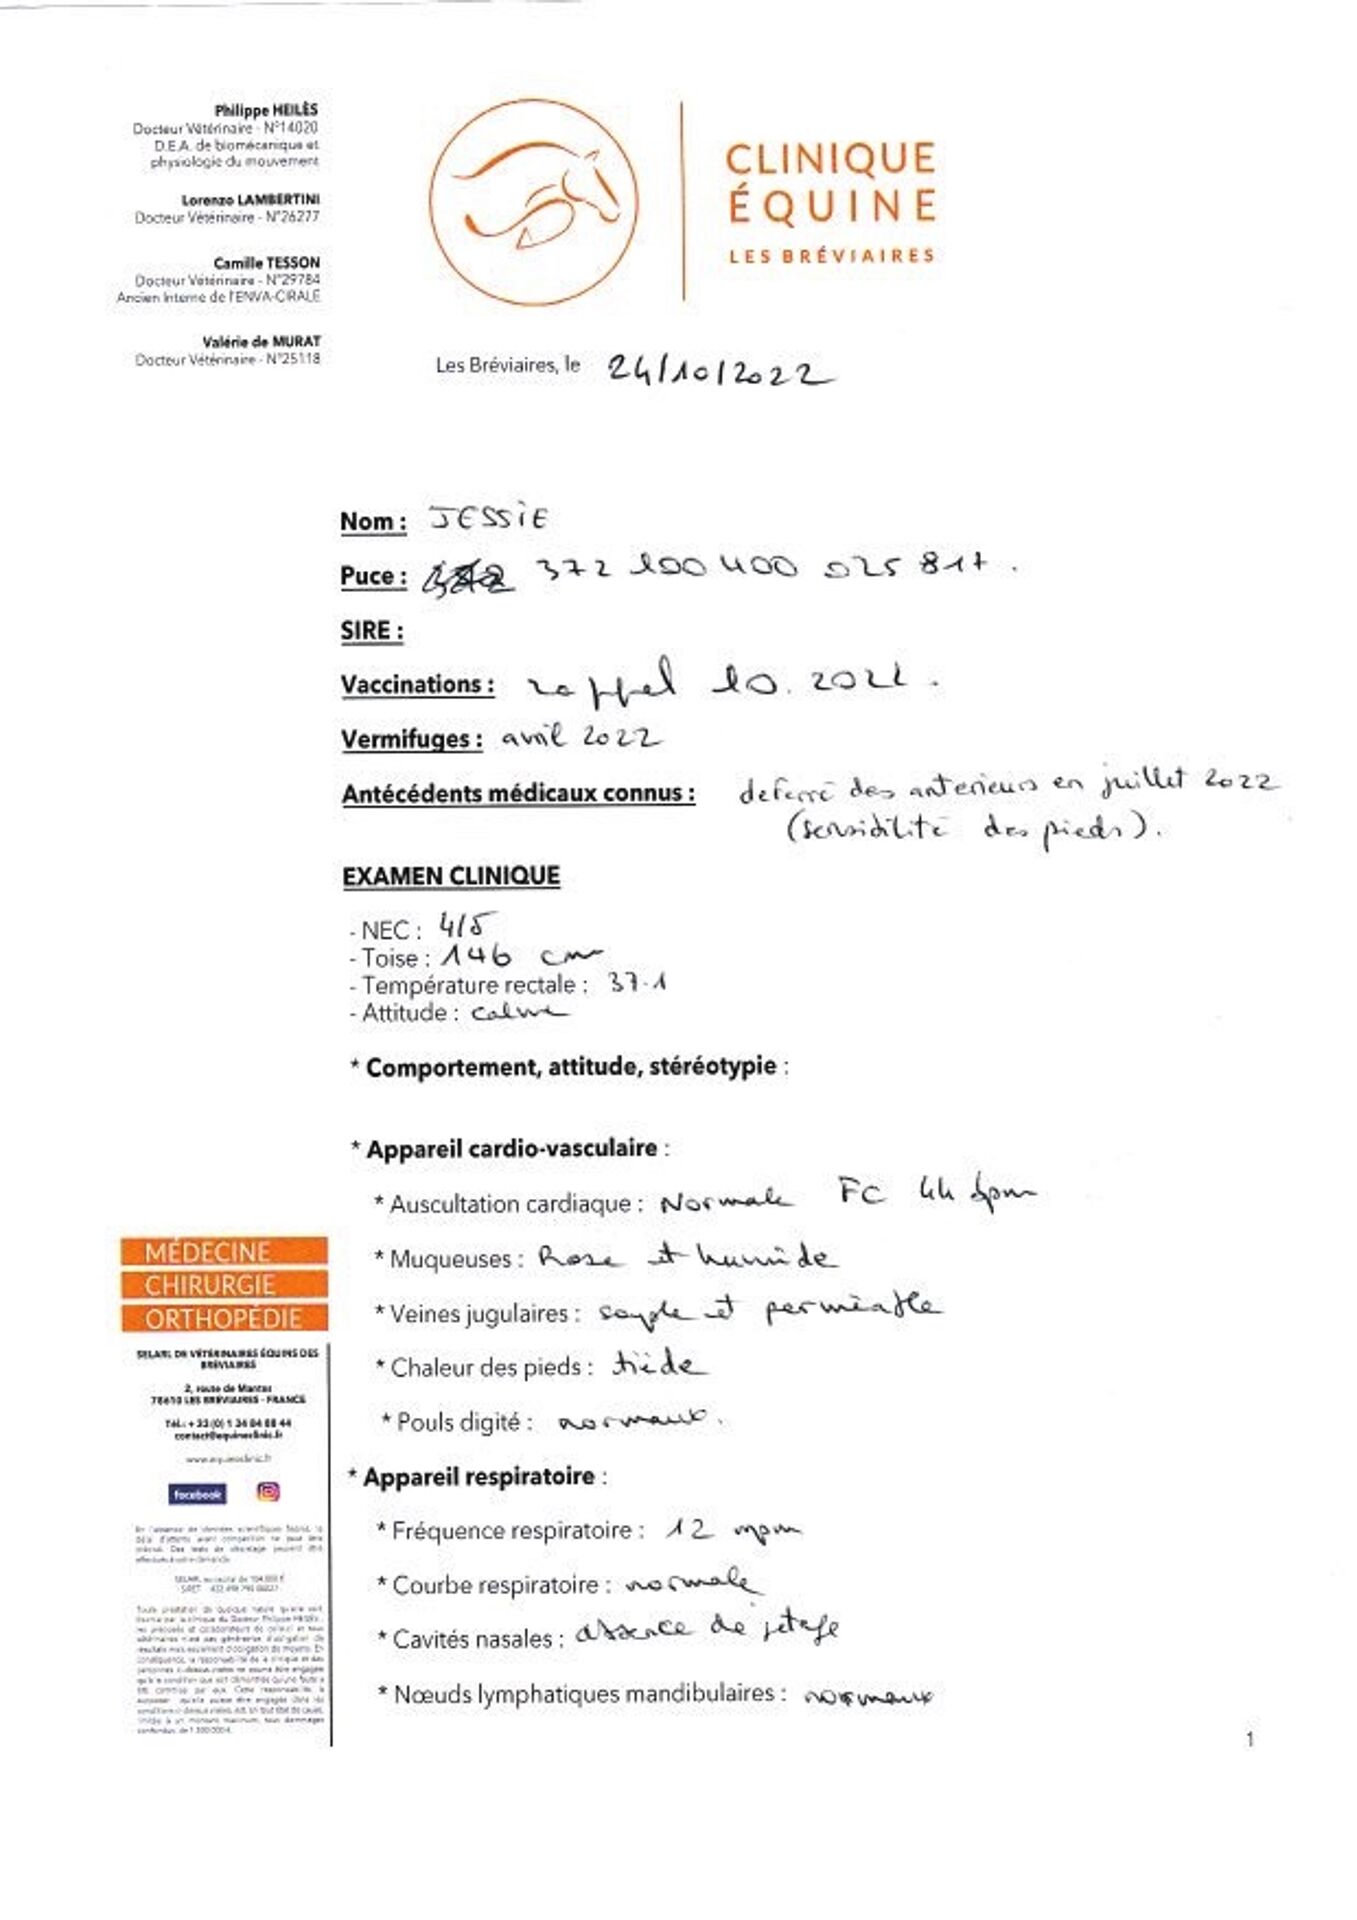 Philippe HEILÈS
Docteur Vétérinaire - N°14020
D.E.A. de biomécanique et
physiologie du mouvement
Lorenzo LAMBERTINI
Docteur Vétérinaire - N°26277
Camille TESSON
Docteur Vétérinaire - N°29784
Ancien Interne de l'ENVA-CIRALE
Valérie de MURAT
Docteur Vétérinaire - N°25118
CLINIQUE
ÉQUINE
LES BRÉVIAIRES
Les Bréviaires, le 24/10/2022
Nom : JESSIE
Puce : 372 100400 025 817.
SIRE :
Vaccinations : rappel 10. 2022.
Vermifuges : avril 2022
Antécédents médicaux connus : deferré des anterieurs en juillet 2022
(sensibilité des pieds).
EXAMEN CLINIQUE
- NEC : 4/5
- Toise : 146 cm
- Température rectale : 37.1
- Attitude : calme
* Comportement, attitude, stéréotypie :
* Appareil cardio-vasculaire :
* Auscultation cardiaque : Normale FC 44 bpm
* Muqueuses : Rose et humide
* Veines jugulaires : souple et perméable
* Chaleur des pieds : tiède
* Pouls digité : normaux.
* Appareil respiratoire :
* Fréquence respiratoire : 12 mpm
* Courbe respiratoire : normale
* Cavités nasales : absence de jetage
* Nœuds lymphatiques mandibulaires : normaux
MÉDECINE
CHIRURGIE
ORTHOPÉDIE
SELARL DE VÉTÉRINAIRES ÉQUINS DES
BRÉVIAIRES
2, route de Mantes
78610 LES BRÉVIAIRES - FRANCE
Tél. : + 33 (0) 1 34 84 88 44
contact@equineclinic.fr
www.equineclinic.fr
facebook
1